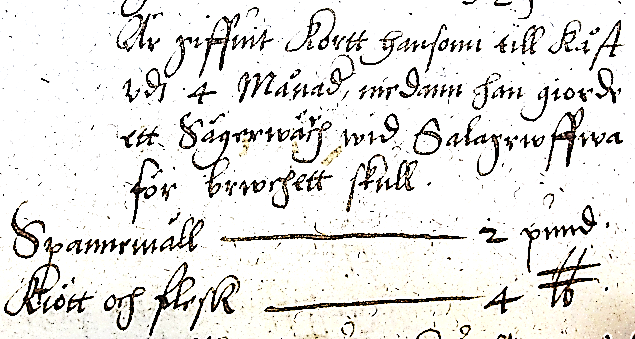 Är giffuit Kortt hansonn till Kåst
vdi 4 Månad, medann han giorde
ett Sägerwäch wid Salagrwffwa
för brwchett skull.
Spannemåll 2 pund.
Kiött och flesk 4 ℔.